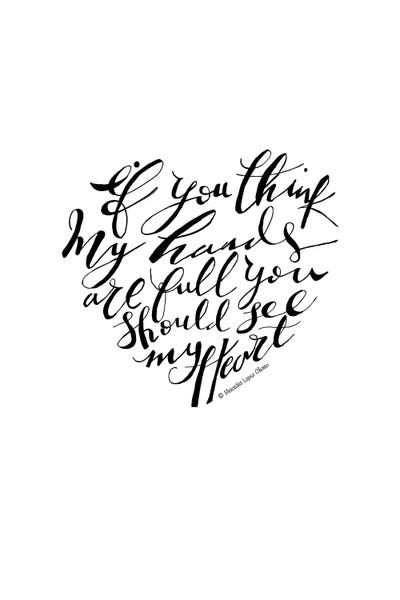 if you think
My hands
are full you
should see
my Heart
© Mercedes Lopez Charro